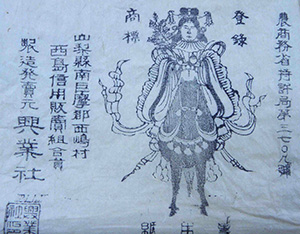 農商務省特許局第三一〇九號
登録
商標
山梨縣南巨摩郡西嶋村
西島信用販賣組合員
製造発賣元 興業社